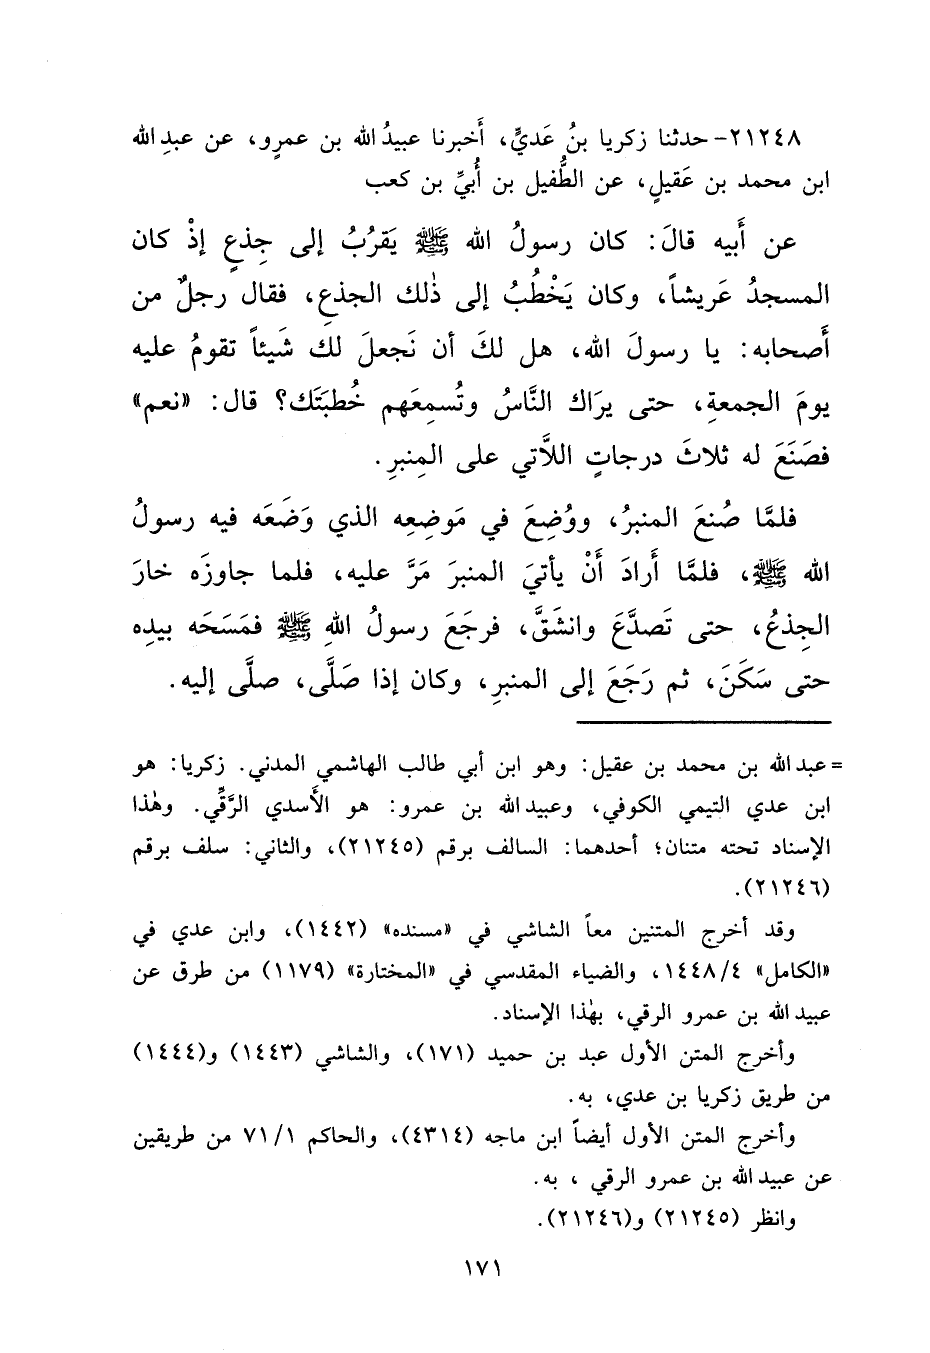 ٢١٢٤٨- حدثنا زكريا بنُ عَديٍّ، أَخبرنا عبيدُ الله بن عمرٍو، عن عبدِ الله
ابن محمد بن عَقيلٍ، عن الطُّفيل بن أُبيِّ بن كعب
عن أَبيه قالَ: كان رسولُ الله ﷺ يَقرُبُ إلى جِذعٍ إذْ كان
المسجدُ عَريشاً، وكان يَخْطُبُ إلى ذٰلك الجذعِ، فقال رجلٌ من
أَصحابه: يا رسولَ الله، هل لكَ أن نَجعلَ لك شَيئاً تقومُ عليه
يومَ الجمعةِ، حتى يرَاك النَّاسُ وتُسمِعَهم خُطبَتَك؟ قال: «نعم»
فصَنَعَ له ثلاثَ درجاتٍ اللاَّتي على المِنبرِ.
فلمَّا صُنعَ المنبرُ، ووُضِعَ في مَوضِعِه الذي وَضَعَه فيه رسولُ
الله ﷺ، فلمَّا أَرادَ أَنْ يأتيَ المنبرَ مَرَّ عليه، فلما جاوزَه خارَ
الجِذعُ، حتى تَصدَّعَ وانشَقَّ، فرجَعَ رسولُ اللهِ ﷺ فمَسَحَه بيدِه
حتى سَكَنَ، ثم رَجَعَ إلى المنبرِ، وكان إذا صَلَّى، صلَّى إليه.
= عبد الله بن محمد بن عقيل: وهو ابن أبي طالب الهاشمي المدني. زكريا: هو
ابن عدي التيمي الكوفي، وعبيد الله بن عمرو: هو الأَسدي الرَّقِّي. وهٰذا
الإسناد تحته متنان؛ أحدهما: السالف برقم (٢١٢٤٥)، والثاني: سلف برقم
(٢١٢٤٦).
وقد أخرج المتنين معاً الشاشي في «مسنده» (١٤٤٢)، وابن عدي في
«الكامل» ١٤٤٨/٤، والضياء المقدسي في «المختارة» (١١٧٩) من طرق عن
عبيد الله بن عمرو الرقي، بهٰذا الإسناد.
وأخرج المتن الأول عبد بن حميد (١٧١)، والشاشي (١٤٤٣) و(١٤٤٤)
من طريق زكريا بن عدي، به.
وأخرج المتن الأول أيضاً ابن ماجه (٤٣١٤)، والحاكم ٧١/١ من طريقين
عن عبيد الله بن عمرو الرقي ، به.
وانظر (٢١٢٤٥) و(٢١٢٤٦).
١٧١